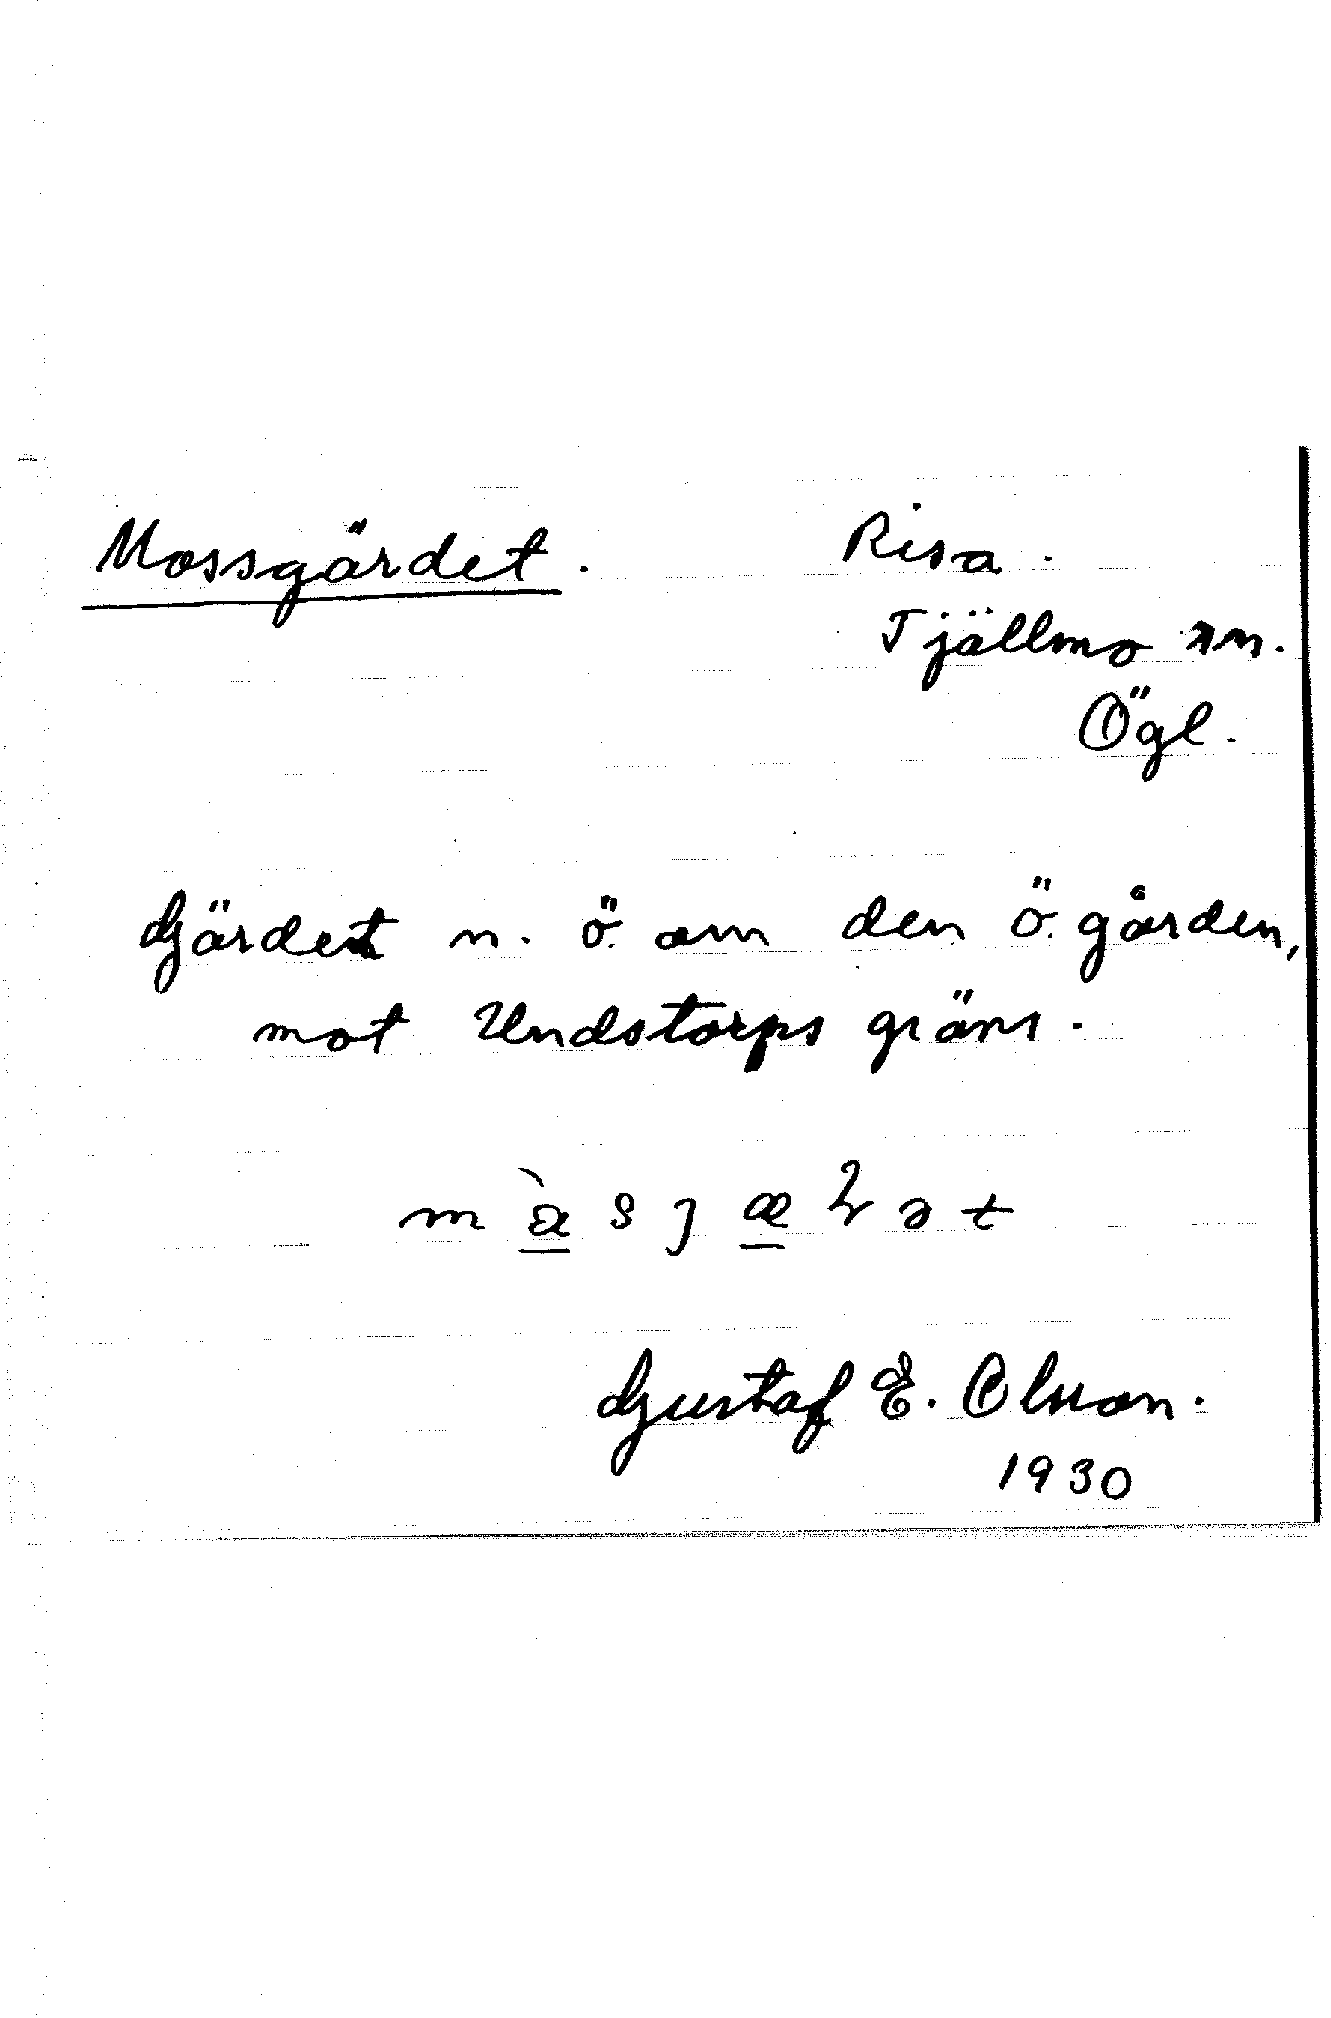 Mossgärdet.
Risa.
Tjällmo sn.
Ögl.
Gärdet n. ö. om den ö. gården,
mot Undstorps gräns.
Gustaf E. Olsson.
1930